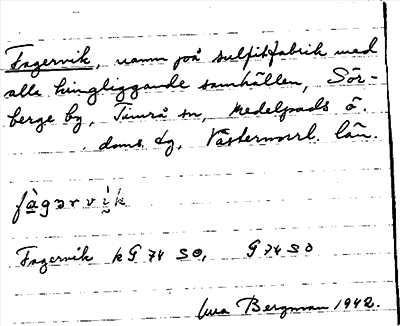 Fagervik, namn på sulfitfabrik med
alla kringliggande samhällen, Sör-
berge by, Timrå sn, Medelpads ö.
doms. dg, Västernorrl. län.
fàgərvìk
Fagervik kG 74 SO, G 74 SO
Bergman 1942.